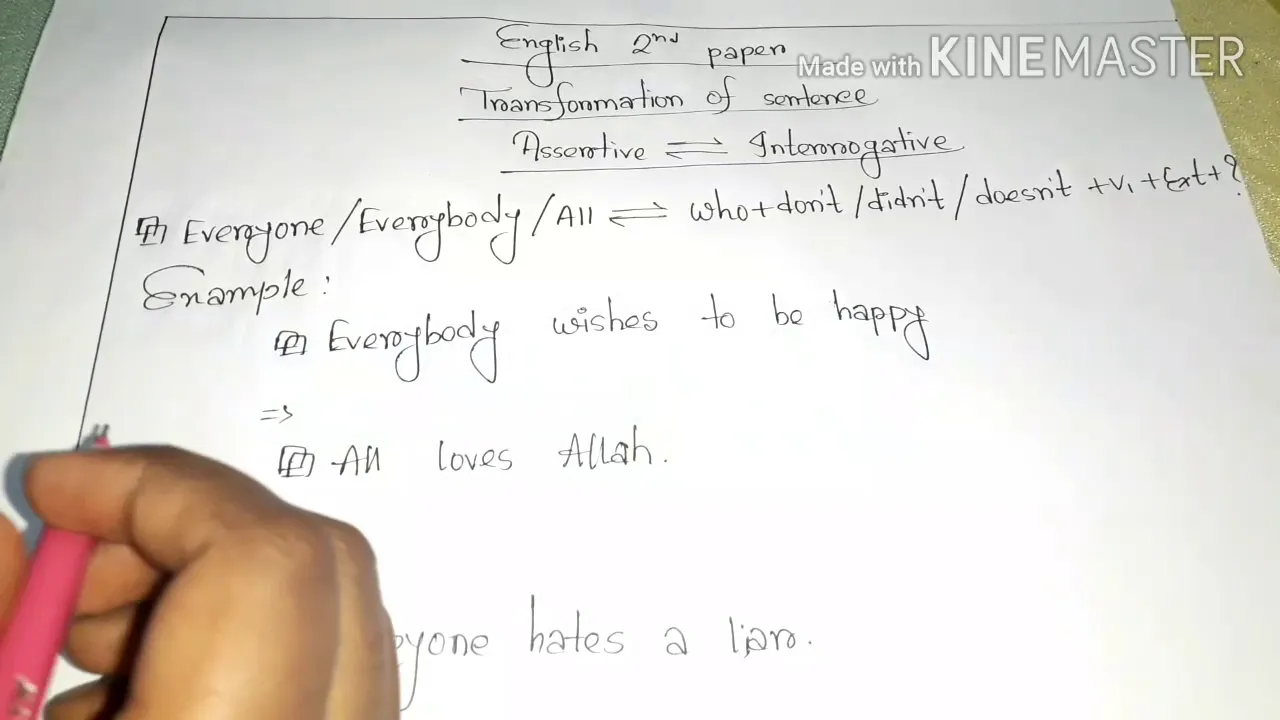 English 2nd paper
Made with KINEMASTER
Transformation of sentence
Assertive ⇌ Interrogative
Everyone/Everybody/All ⇌ who+don't/didn't/doesn't +V1+Ext+?
Example:
Everybody wishes to be happy
⇒
All loves Allah.
yone hates a liar.